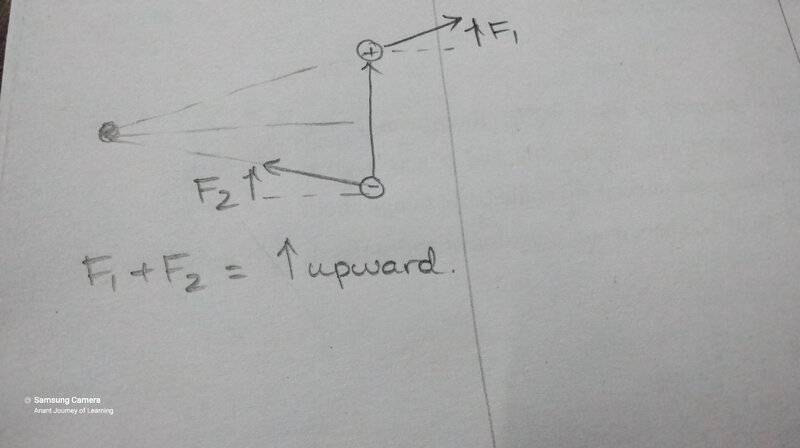 +
↑F₁
F₂↑
−
F₁ + F₂ = ↑ upward.
Samsung Camera
Anant Journey of Learning